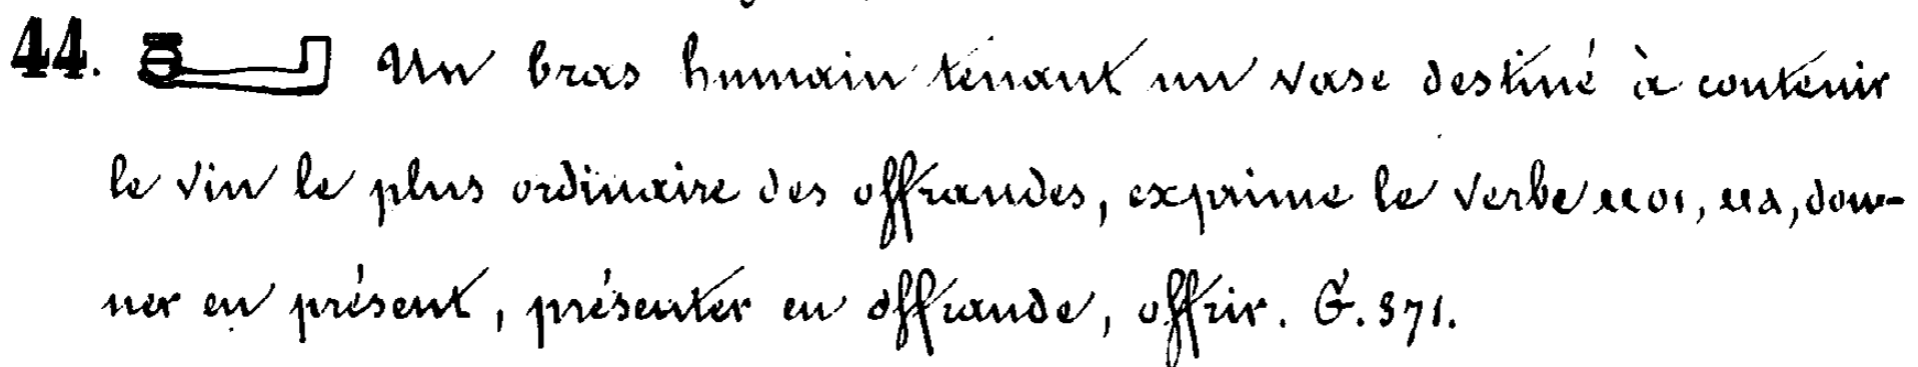 44. Un bras humain tenant un vase destiné à contenir
le vin le plus ordinaire des offrandes, exprime le verbe ⲙⲟⲓ, ⲙⲁ, don-
ner en présent, présenter en offrande, offrir. G. 371.